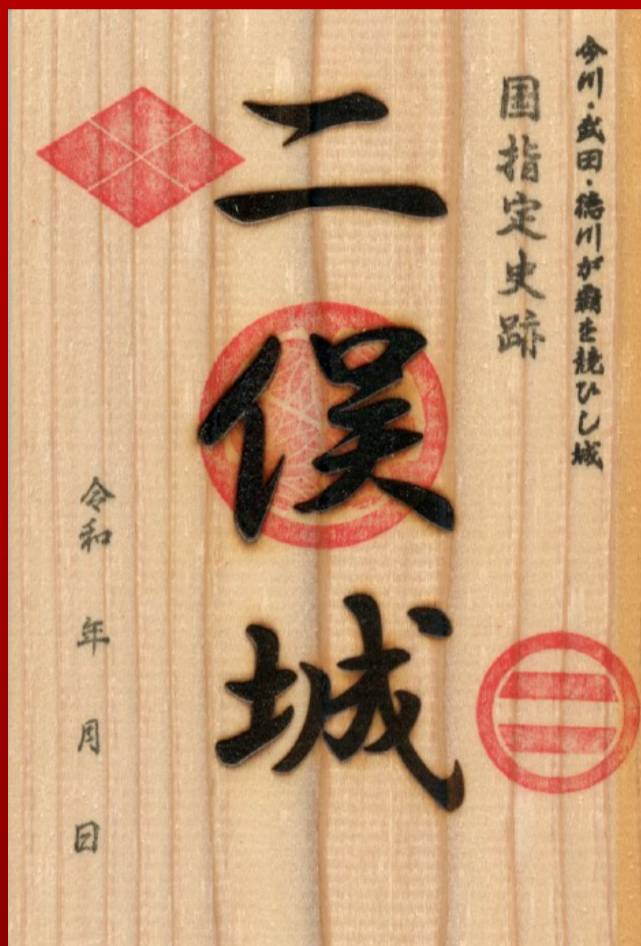 今川・武田・徳川が覇を競ひし城
国指定史跡
二俣城
令和 年 月 日